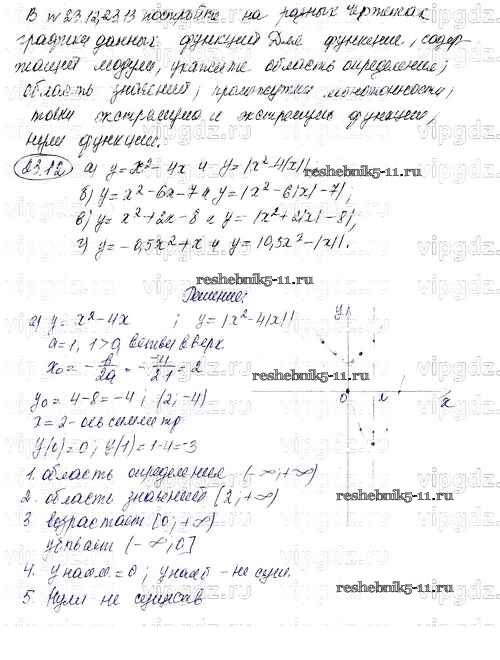 В № 23.12-23.13 постройте на разных чертежах
графики данных функций Для функции, содер-
жащей модули, укажите область определения;
область значений; промежутки монотонности;
точки экстремума и экстремумы функции,
нули функции.
23.12 а) y = x² - 4x и y = |x² - 4|x||;
reshebnik5-11.ru
б) y = x² - 6x - 7 и y = |x² - 6|x| - 7|;
в) y = x² + 2x - 8 и y = |x² + 2|x| - 8|;
г) y = -0,5x² + x и y = |0,5x² - |x||.
reshebnik5-11.ru
Решение:
а) y = x² - 4x ; y = |x² - 4|x||
a = 1, 1 > 0 ветви вверх
x₀ = -b/2a = -(-4)/2·1 = 2
y₀ = 4 - 8 = -4; (2; -4)
x = 2 - ось симметр
y(0) = 0; y(1) = 1 - 4 = -3
y
0
x
1. область определения (-∞; +∞)
2. область значений [2; +∞)
reshebnik5-11.ru
3 возрастает [0; +∞)
убывает (-∞, 0]
4. y наим = 0; y наиб - не сущ.
reshebnik5-11.ru
5. Нули не
vipgdz